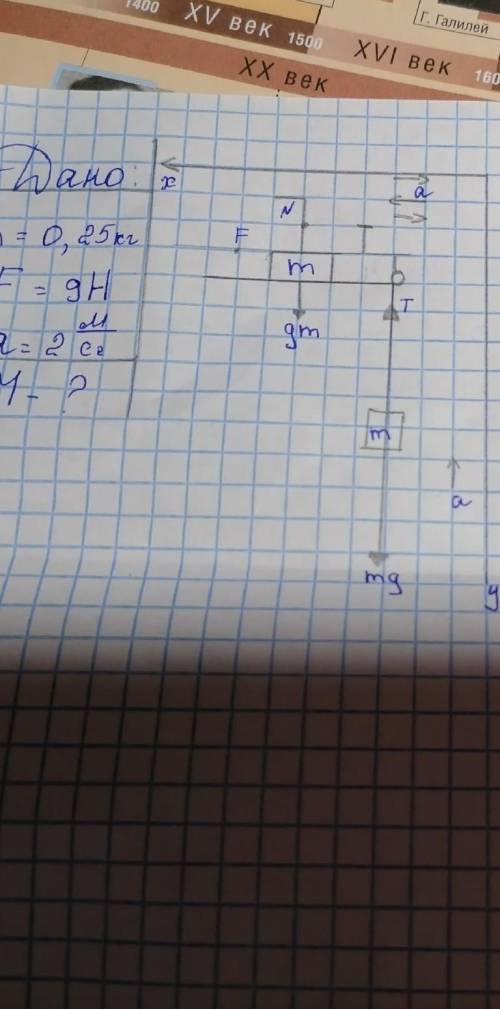 1400 XV век 1500
XVI век 160
Г. Галилей
XX век
Дано:
= 0,25кг
F = 9Н
a = 2 м/с²
M - ?
x
a
N
F
T
m
gm
T
m
a
mg
y